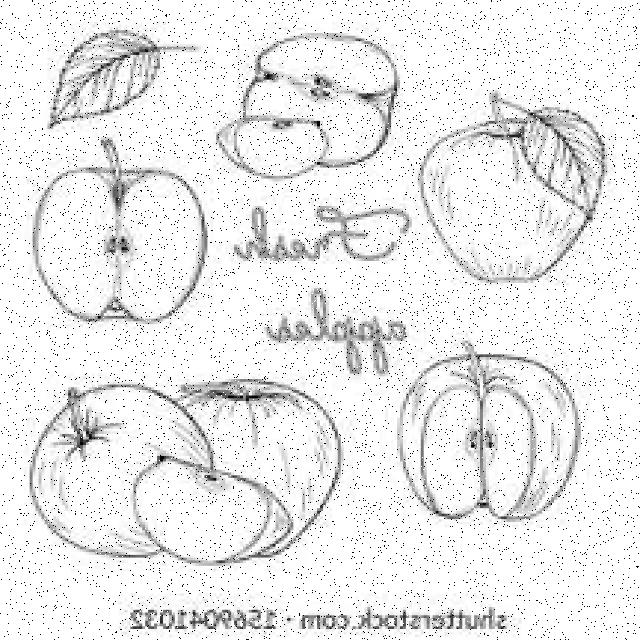 Fresh
apples
shutterstock.com · 1569041032